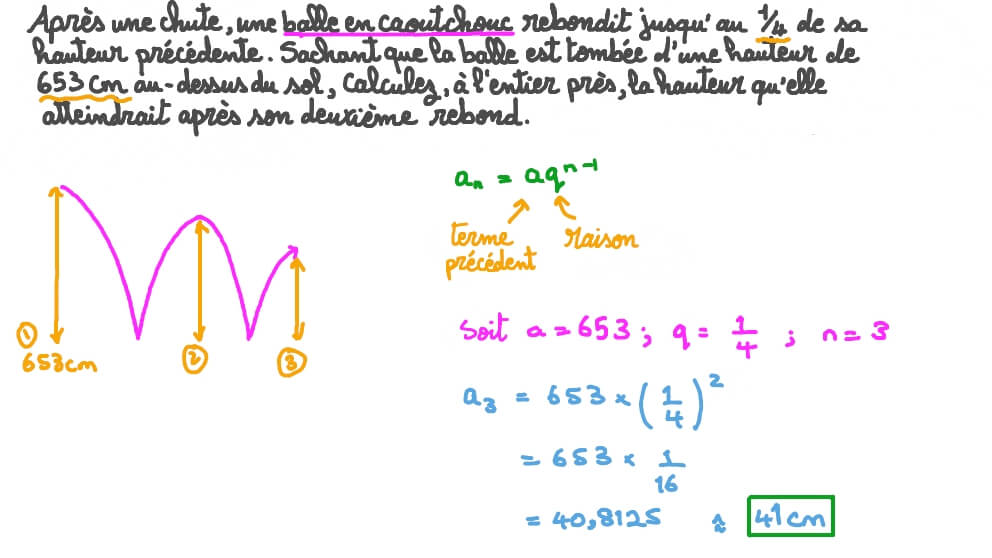 Après une chute, une balle en caoutchouc rebondit jusqu'au 1/4 de sa
hauteur précédente. Sachant que la balle est tombée d'une hauteur de
653 cm au-dessus du sol, Calculez, à l'entier près, la hauteur qu'elle
atteindrait après son deuxième rebond.
aₙ = aqⁿ⁻¹
terme précédent
raison
① 653cm
②
③
Soit a = 653 ; q = 1/4 ; n = 3
a₃ = 653 × (1/4)²
= 653 × 1/16
= 40,8125 ≈ 41 cm